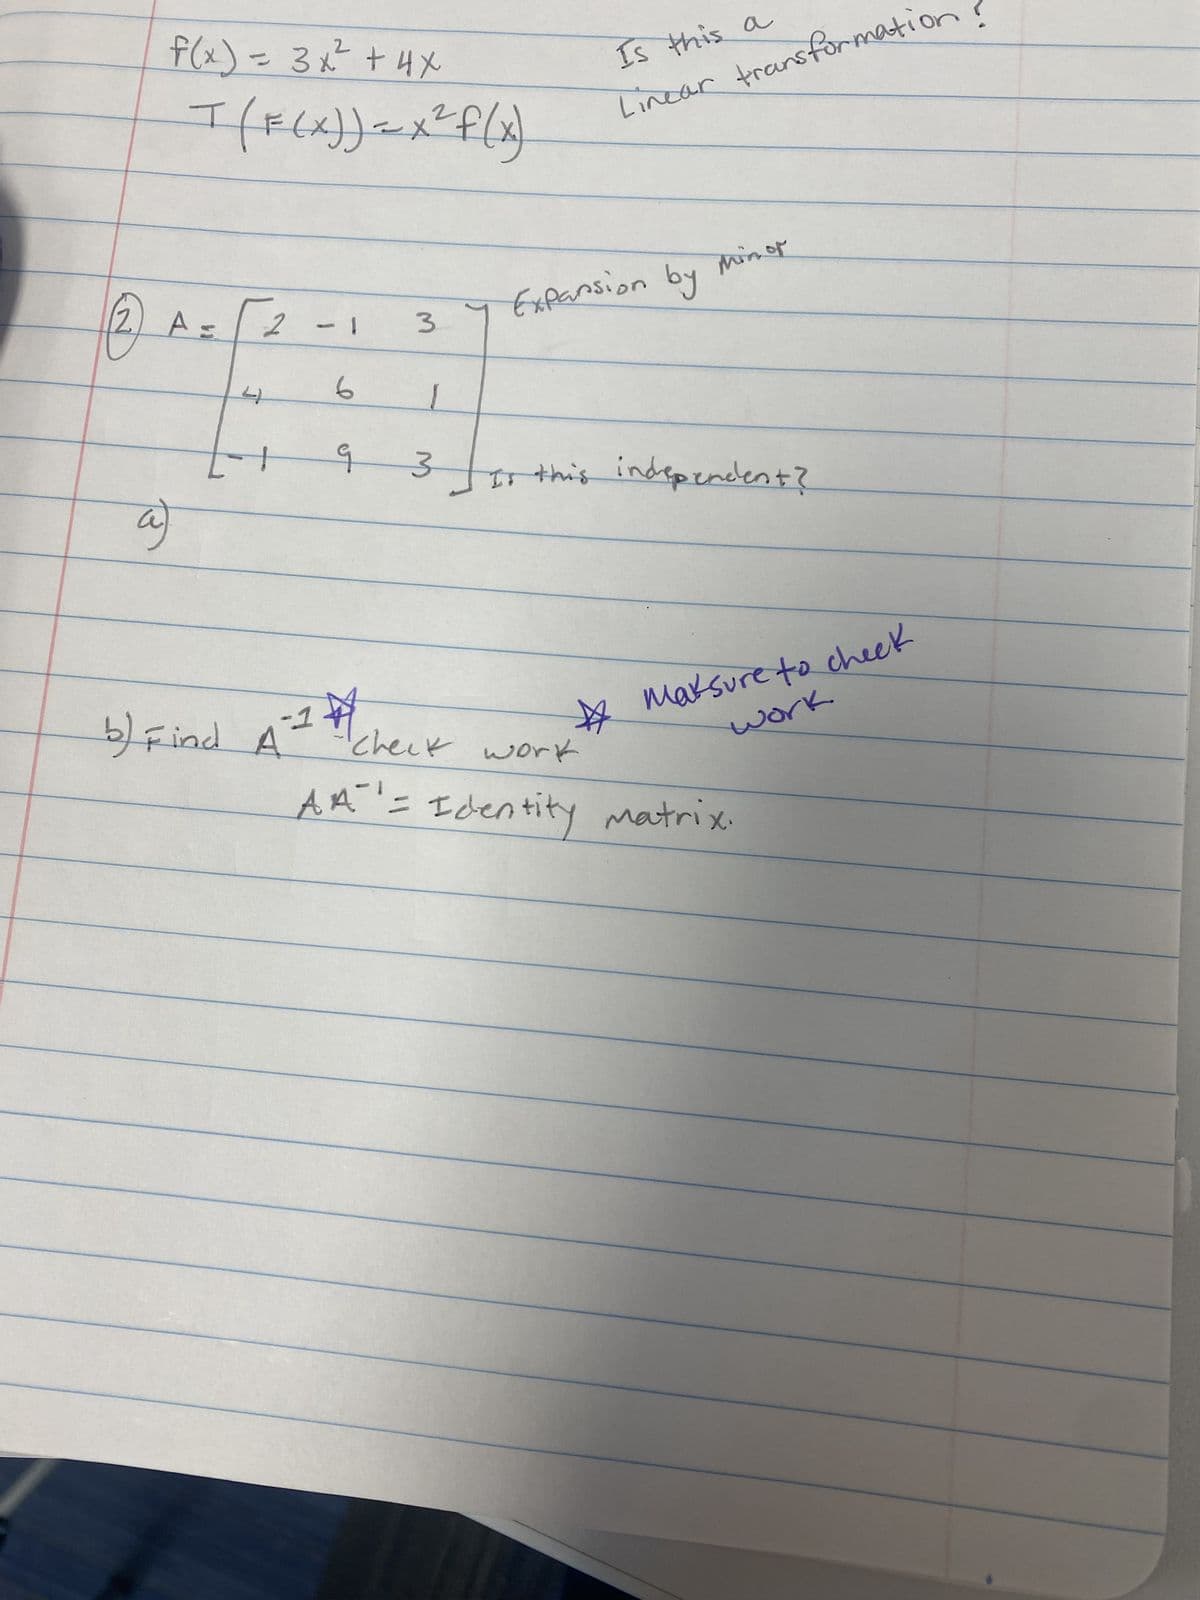 f(x) = 3x² + 4x
T(F(x)) = x²f(x)
Is this a
Linear transformation?
② A = [ 2 -1 3
4 6 1
-1 9 3 ]
Expansion by Minor
Is this independent?
a)
☆ Maksure to check
work
b) Find A⁻¹ ☆ -check work
AA⁻¹ = Identity Matrix.